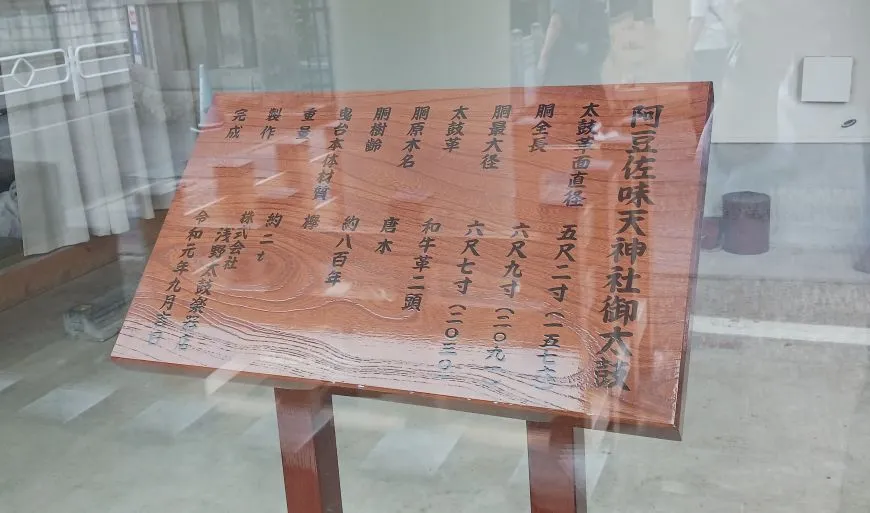 阿豆佐味天神社御太鼓
太鼓革面直径 五尺二寸(一五七六
胴全長 六尺九寸(二〇九一
胴最大径 六尺七寸(二〇三〇
太鼓革 和牛革二頭
胴原木名 唐木
胴樹齢 約八百年
曳台本体材質 欅
重量 約二t
製作 株式会社
浅野太鼓楽器店
完成 令和元年九月吉日